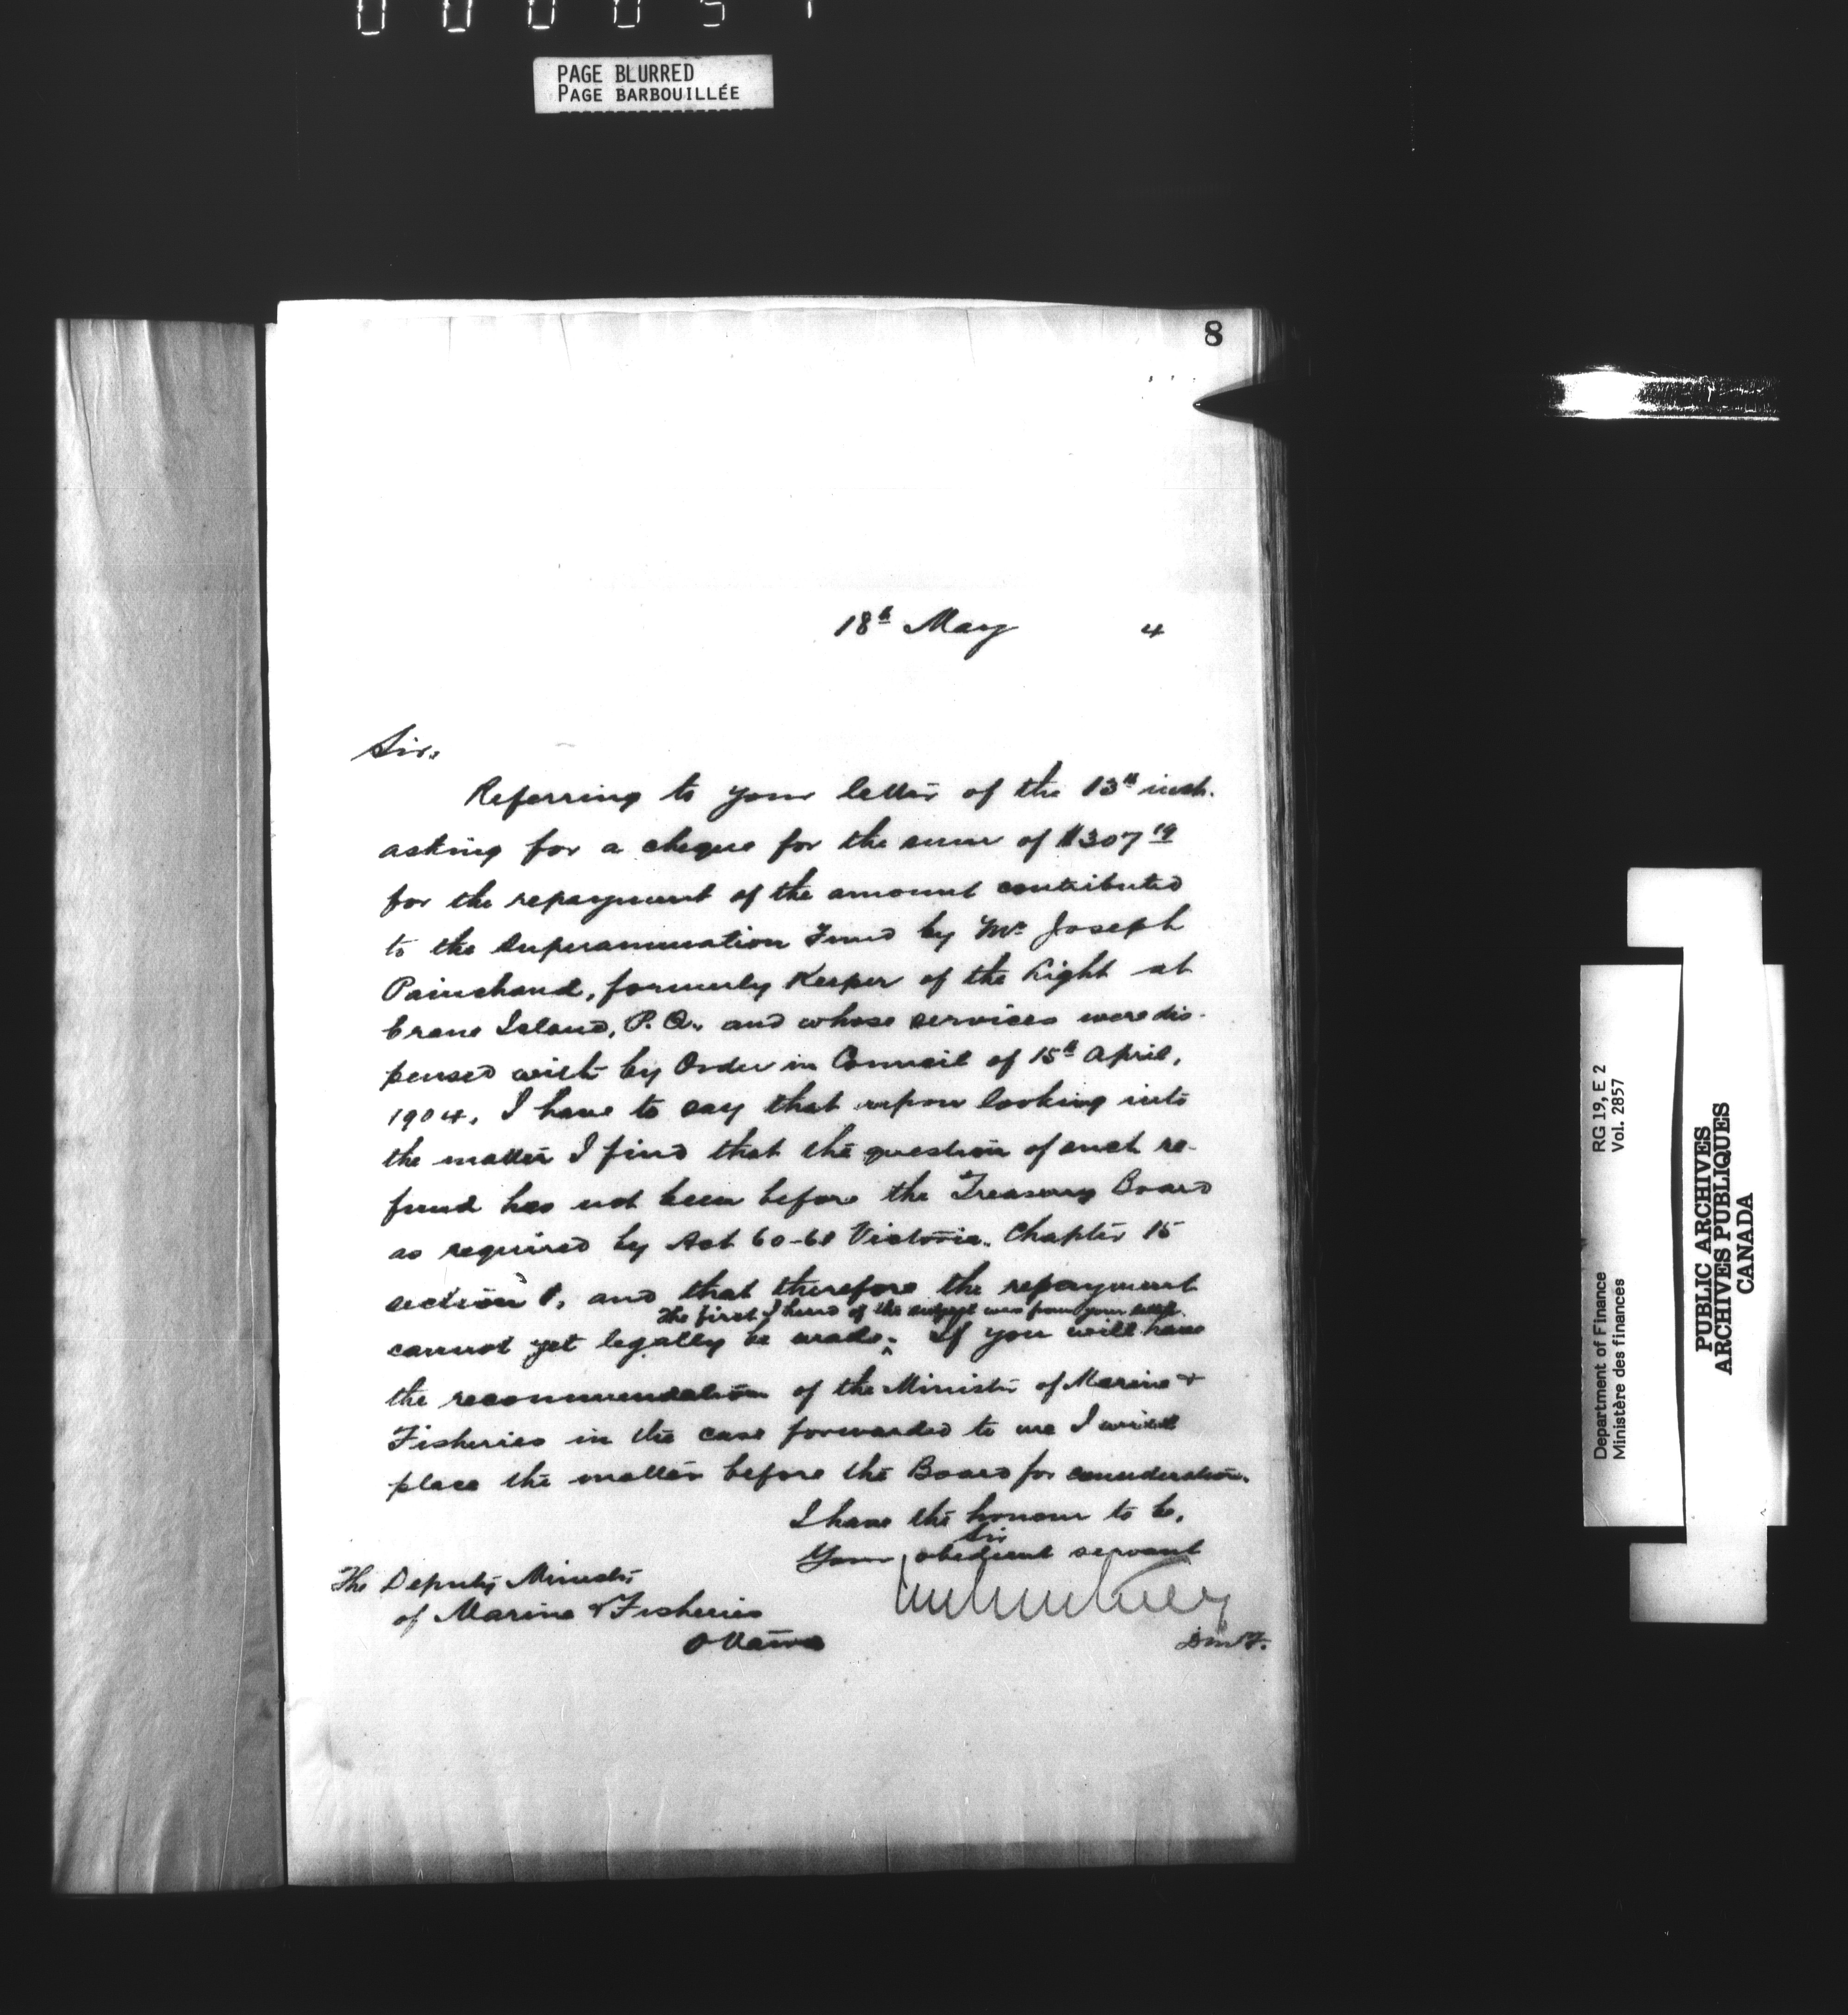 PAGE BLURRED
PAGE BARBOUILLÉE
8
18th May 4
Sir,
Referring to your letter of the 13th inst.
asking for a cheque for the sum of $307 19
for the repayment of the amount contributed
to the Superannuation Fund by Mr Joseph
Painchaud, formerly Keeper of the Light at
Crane Island, P.Q., and whose services were dis-
pensed with by Order in Council of 15th April,
1904, I have to say that upon looking into
the matter I find that the question of such re-
fund has not been before the Treasury Board
as required by Act 60-61 Victoria, Chapter 15
section, and that therefore the repayment
The first I heard of the subject was from your letter.
cannot yet legally be made. If you will have
the recommendation of the Minister of Marine &
Fisheries in the case forwarded to me I will
place the matter before the Board for consideration.
I have the honour to be,
Sir
Your obedient servant
The Deputy Minister
of Marine & Fisheries
Ottawa
D.M.F.
Department of Finance RG 19, E 2
Ministère des finances Vol. 2857
PUBLIC ARCHIVES
ARCHIVES PUBLIQUES
CANADA